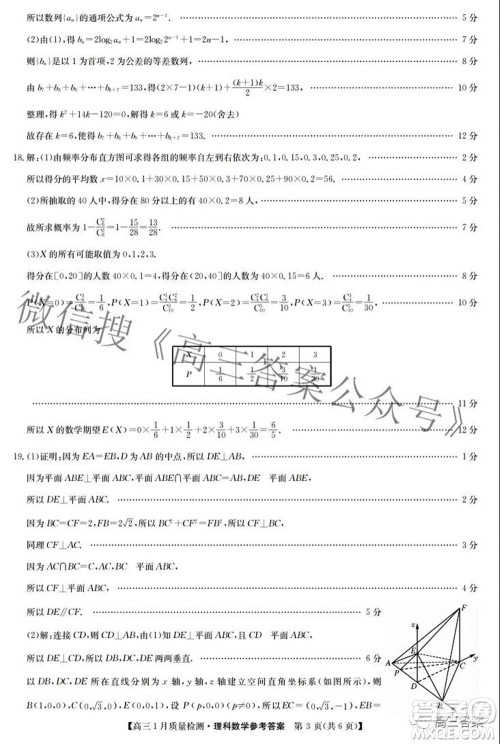 所以数列{aₙ}的通项公式为 aₙ=2ⁿ⁻¹. 5 分
(2)由(1),得 bₙ=2log₂aₙ+1=2log₂2ⁿ⁻¹+1=2n-1, 7 分
则{bₙ}是以 1 为首项,2 为公差的等差数列, 8 分
由 b₇+b₈+b₉+…+b₆₊₇=133,得(2×7-1)(k+1)+(k+1)k/2×2=133, 10 分
整理,得 k²+14k-120=0,解得 k=6 或 k=-20(舍去)
故存在 k=6,使得 b₇+b₈+b₉+…+bₖ₊₇=133. 12 分
18.解:(1)由频率分布直方图可求得各组的频率自左到右依次为:0.1,0.15,0.3,0.25,0.2, 2 分
所以得分的平均数 x=10×0.1+30×0.15+50×0.3+70×0.25+90×0.2=56. 4 分
(2)所抽取的 40 人中,得分在 80 分以上的有 40×0.2=8 人, 5 分
故所求概率为 1-C₆²/C₈²=1-15/28=13/28. 7 分
(3)X 的所有可能取值为 0,1,2,3.
得分在[0,20]的人数 40×0.1=4,得分在(20,40]的人数为 40×0.15=6, 8 分
所以 X 的分布列为
X 0 1 2 3
P 1/6 1/2 3/10 1/30
11 分
所以 X 的数学期望 E(X)=0×1/6+1×1/2+2×3/10+3×1/30=6/5. 12 分
19.(1)证明:因为 EA=EB,D 为 AB 的中点,所以 DE⊥AB, 1 分
因为平面 ABE⊥平面 ABC,平面 ABE∩平面 ABC=AB,
所以 DE⊥平面 ABC. 2 分
因为 BC=CF=2,FB=2√2,所以 BC²+CF²=FB²,所以 CF⊥BC.
同理 CF⊥AC. 3 分
因为 AC∩BC=C,AC,BC⊂平面 ABC,
所以 CF⊥平面 ABC, 4 分
所以 DE∥CF. 5 分
(2)解:连接 CD,则 CD⊥AB,由(1)知 DE⊥平面 ABC,且 CD⊂平面 ABC,
所以 DE⊥CD,所以 AB,CD,DE 两两垂直. 6 分
以 DB,DC,DE 所在直线分别为 x 轴,y 轴,z 轴建立空间直角坐标系,如图所示,则
【高三 1 月质量检测·理科数学参考答案 第 3 页(共 6 页)】
微信搜《高三答案公众号》
高三答案